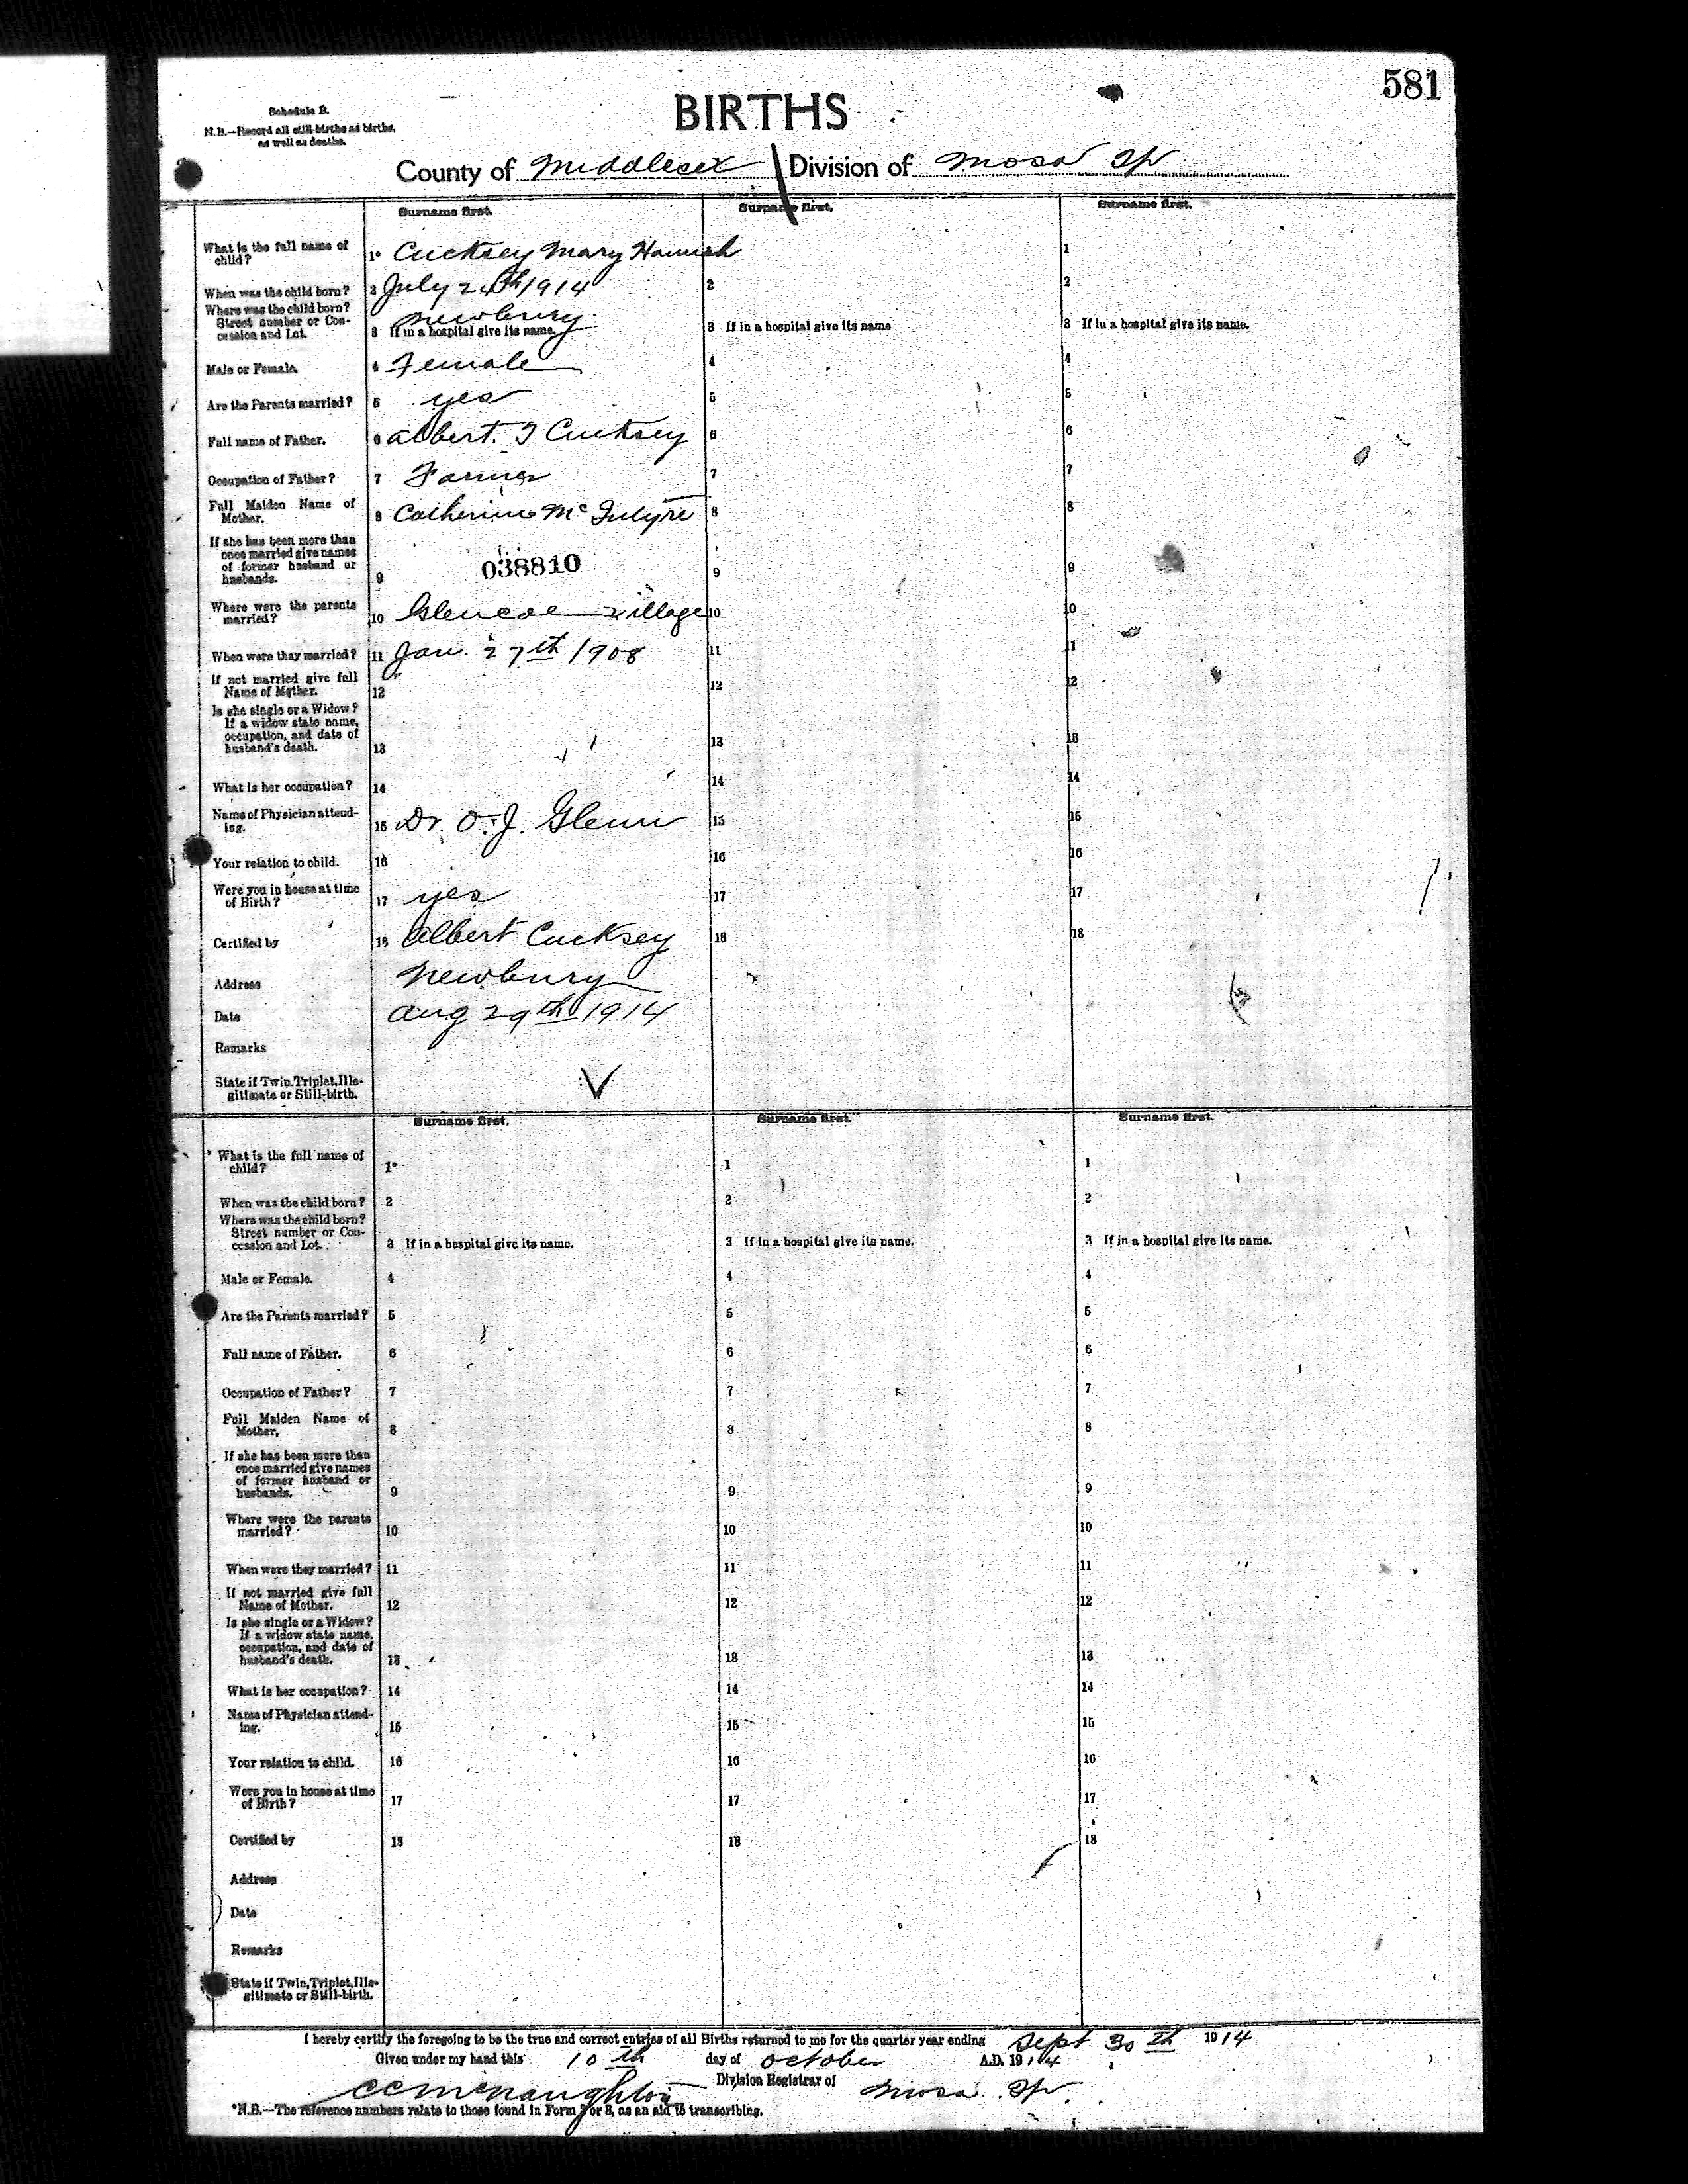 581
Schedule B.
BIRTHS
N.B.—Record all still-births as births,
as well as deaths.
County of Middlesex Division of Mosa Tp
Surname first. Surname first. Surname first.
What is the full name of
child? 1* Cucksey Mary Hannah 1
When was the child born? 2 July 24th 1914 2 2
Where was the child born?
Street number or Con-
cession and Lot. 3 Newbury
If in a hospital give its name. 3 If in a hospital give its name 3 If in a hospital give its name.
Male or Female. 4 Female 4 4
Are the Parents married? 5 yes 5 5
Full name of Father. 6 Albert. T Cucksey 6 6
Occupation of Father? 7 Farmer 7 7
Full Maiden Name of
Mother. 8 Catherine McIntyre 8 8
If she has been more than
once married give names
of former husband or
husbands. 9 038810 9 9
Where were the parents
married? 10 Glencoe village 10 10
When were they married? 11 Jan. 27th 1908 11 11
If not married give full
Name of Mother. 12 12 12
Is she single or a Widow?
If a widow state name,
occupation, and date of
husband's death. 13 13 13
What is her occupation? 14 14 14
Name of Physician attend-
ing. 15 Dr. O. J. Glenn 15 15
Your relation to child. 16 16 16
Were you in house at time
of Birth? 17 yes 17 17
Certified by 18 Albert Cucksey 18 18
Address Newbury
Date Aug 29th 1914
Remarks
State if Twin, Triplet, Ille-
gitimate or Still-birth.
Surname first. Surname first. Surname first.
What is the full name of
child? 1* 1 1
When was the child born? 2 2 2
Where was the child born?
Street number or Con-
cession and Lot. 3 If in a hospital give its name. 3 If in a hospital give its name. 3 If in a hospital give its name.
Male or Female. 4 4 4
Are the Parents married? 5 5 5
Full name of Father. 6 6 6
Occupation of Father? 7 7 7
Full Maiden Name of
Mother. 8 8 8
If she has been more than
once married give names
of former husband or
husbands. 9 9 9
Where were the parents
married? 10 10 10
When were they married? 11 11 11
If not married give full
Name of Mother. 12 12 12
Is she single or a Widow?
If a widow state name,
occupation, and date of
husband's death. 13 13 13
What is her occupation? 14 14 14
Name of Physician attend-
ing. 15 15 15
Your relation to child. 16 16 16
Were you in house at time
of Birth? 17 17 17
Certified by 18 18 18
Address
Date
Remarks
State if Twin, Triplet, Ille-
gitimate or Still-birth.
I hereby certify the foregoing to be the true and correct entries of all Births returned to me for the quarter year ending Sept 30th 1914
Given under my hand this 10th day of October A.D. 1914
CC McNaughton Division Registrar of Mosa Tp.
*N.B.—The reference numbers relate to those found in Form 2 or 3, as an aid to transcribing.